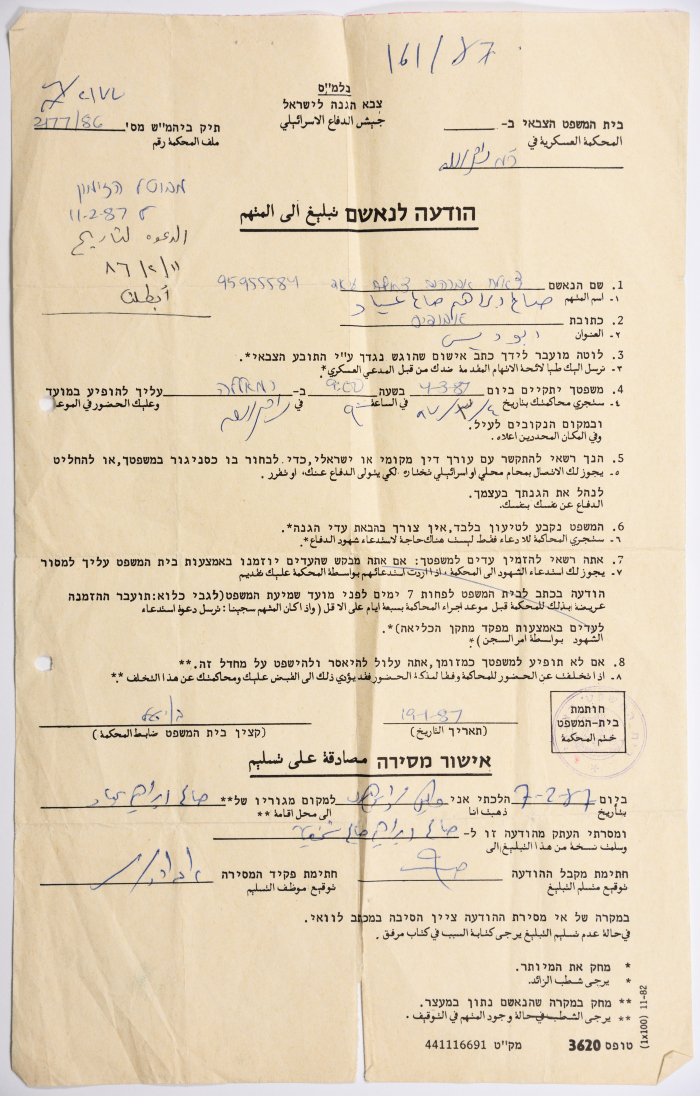 161/87
נלמ"ס
צבא הגנה לישראל
جيش الدفاع الاسرائيلي
בית המשפט הצבאי ב-
المحكمة العسكرية في
رام الله
תיק ביהמ"ש מס' 2177/86
ملف المحكمة رقم
מבוטל הזימון
ל 11-2-87
الدعوه لتاريخ
הודעה לנאשם تبليغ الى المتهم
1. שם הנאשם 95955584
١- اسم المتهم
2. כתובת
٢- العنوان ابو ديس
3. לוטה מועבר לידך כתב אישום שהוגש נגדך ע"י התובע הצבאי*.
٣- نرسل اليك طيا لائحة الاتهام المقدمة ضدك من قبل المدعي العسكري*.
4. משפטך יתקיים ביום 4-3-87 בשעה 9:00 ב- רמאללה עליך להופיע במועד
٤- ستجري محاكمتك بتاريخ ٨٧/٣/٤ في الساعة ٩ في رام الله وعليك الحضور في الموعد
ובמקום הנקובים לעיל.
وفي المكان المحددين اعلاه.
5. הנך רשאי להתקשר עם עורך דין מקומי או ישראלי, כדי לבחור בו כסניגור במשפטך, או להחליט
٥- يجوز لك الاتصال بمحام محلي او اسرائيلي تختاره لكي يتولى الدفاع عنك، او تقرر
לנהל את הגנתך בעצמך.
الدفاع عن نفسك بنفسك.
6. המשפט נקבע לטיעון בלבד, אין צורך בהבאת עדי הגנה*.
٦- ستجري المحاكمة للادعاء فقط ليست هناك حاجة لاستدعاء شهود الدفاع*.
7. אתה רשאי להזמין עדים למשפטך: אם אתה מבקש שהעדים יוזמנו באמצעות בית המשפט עליך למסור
٧- يجوز لك استدعاء الشهود الى المحكمة، اذا اردت استدعائهم بواسطة المحكمة عليك تقديم
הודעה בכתב לבית המשפט לפחות 7 ימים לפני מועד שמיעת המשפט (לגבי כלוא: תועבר ההזמנה
عريضة بذلك للمحكمة قبل موعد اجراء المحاكمة بسبعة ايام على الاقل (واذا كان المتهم سجينا: ترسل دعوة استدعاء
לעדים באמצעות מפקד מתקן הכליאה)*.
الشهود بواسطة امر السجن)*
8. אם לא תופיע למשפטך כמזומן, אתה עלול להיאסר ולהישפט על מחדל זה.**
٨- اذا تخلفت عن الحضور للمحاكمة وفقا لمذكرة الحضور فقد يؤدي ذلك الى القبض عليك ومحاكمتك عن هذا التخلف**.
19-1-87
(תאריך التاريخ)
(קצין בית המשפט ضابط المحكمة)
חותמת
בית-המשפט
ختم المحكمة
אישור מסירה مصادقة على تسليم
ביום 7-2-87 הלכתי אני למקום מגוריו של**
بتاريخ ذهبت انا الى محل اقامة**
ומסרתי העתק מהודעה זו ל-
وسلمت نسخة من هذا التبليغ الى
חתימת מקבל ההודעה חתימת פקיד המסירה
توقيع متسلم التبليغ توقيع موظف التسليم
במקרה של אי מסירת ההודעה ציין הסיבה במכתב לוואי.
في حالة عدم تسليم التبليغ يرجى كتابة السبب في كتاب مرفق.
* מחק את המיותר.
* يرجى شطب الزائد.
** מחק במקרה שהנאשם נתון במעצר.
** يرجى الشطب في حالة وجود المتهم في التوقيف.
טופס 3620 מק"ט 441116691
(1x100) 11-82